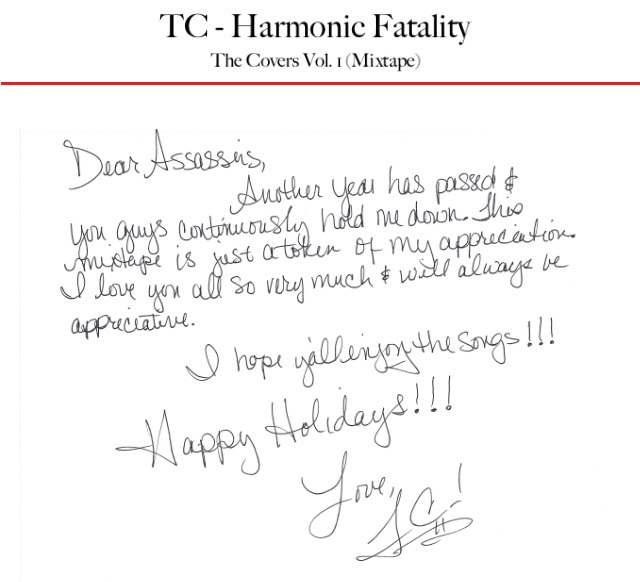 TC - Harmonic Fatality
The Covers Vol. 1 (Mixtape)
Dear Assassins,
Another year has passed &
you guys continuously hold me down. This
mixtape is just a token of my appreciation.
I love you all so very much & will always be
appreciative.
I hope y'all enjoy the songs!!!
Happy Holidays!!!
Love,
TC!